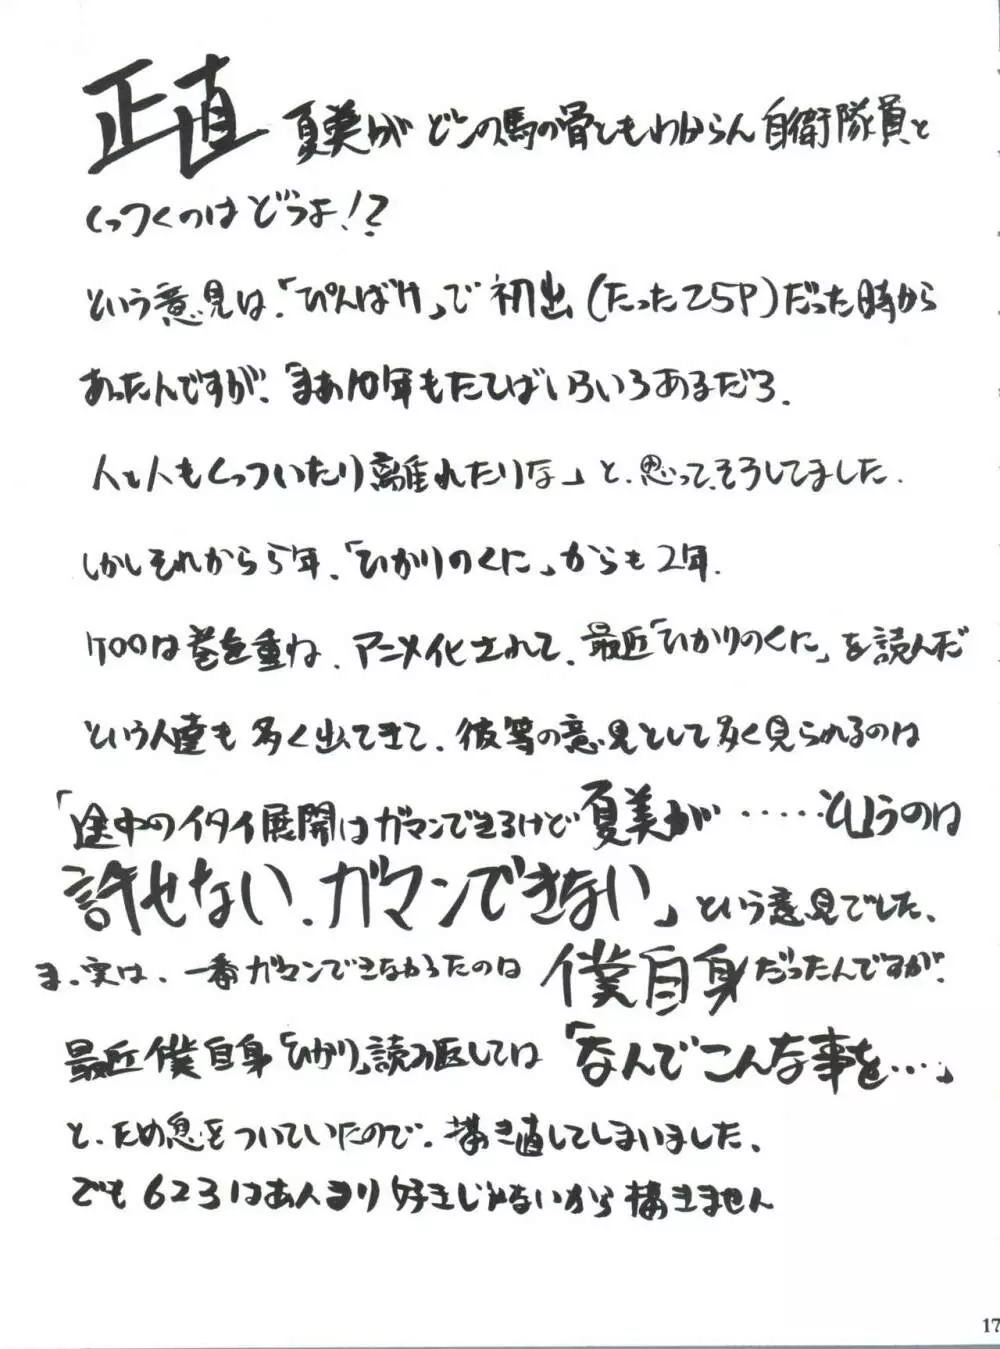 正直 夏美が どこの馬の骨ともわからん 自衛隊員と
くっつくのは どうよ!?
という意見は、「ぴんばけ」で 初出 (たった25P)だった時から
あったんですが、「まあ10年もたてばいろいろあるだろ、
人と人もくっついたり離れたりな」と、思って、そうしてました。
しかしそれから5年、「ひかりのくに」からも2年、
ケロロは巻を重ね、アニメ化されて、最近「ひかりのくに」を読んだ
という人達も 多く出てきて、彼等の意見として多く見られるのは
「途中のイタイ展開はガマンできるけど 夏美が……というのは
許せない、ガマンできない」という意見でした。
ま、実は、一番ガマンできなかったのは 僕自身だったんですが、
最近僕自身「ひかり」読み返しては「なんでこんな事を…」
と、ため息をついていたので、描き直してしまいました。
でも 623はあんまり好きじゃないから 描きません
17